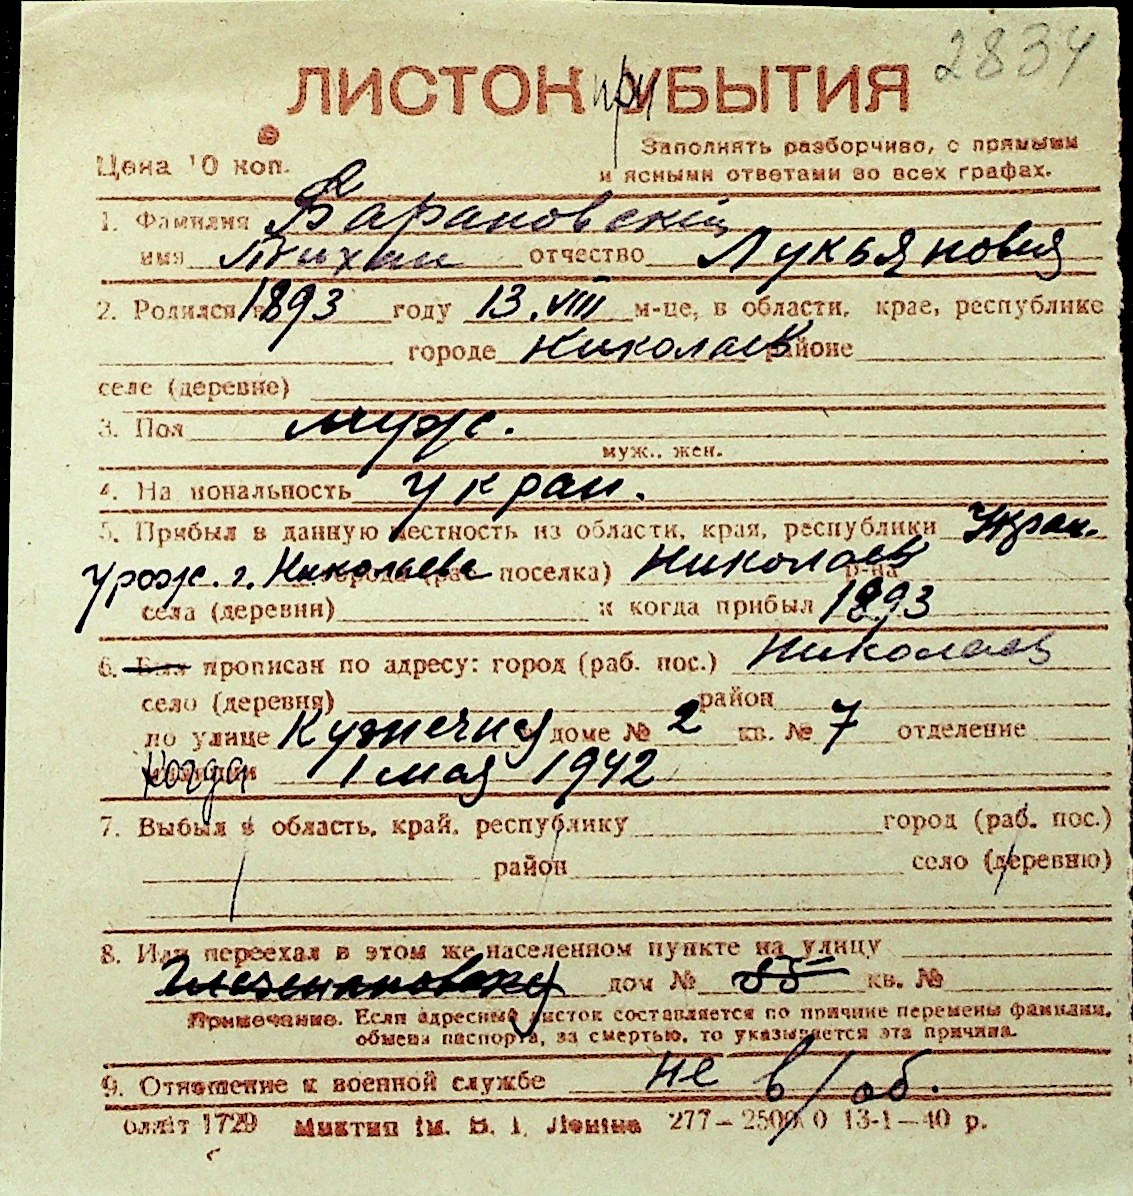 2834
ЛИСТОК при УБЫТИЯ
Заполнять разборчиво, с прямыми
Цена 10 коп. и ясными ответами во всех графах.
1. Фамилия Барановский
имя Тихон отчество Лукьянович
2. Родился в 1893 году 13.VIII м-це, в области, крае, республике
городе Николаев районе
селе (деревне)
3. Пол муж.
муж., жен.
4. На иональность украи.
5. Прибыл в данную местность из области, края, республики Украи.
Урож. г. Николаева города (раб. поселка) Николаев р-на
села (деревни) и когда прибыл 1893
6. Был прописан по адресу: город (раб. пос.) Николаев
село (деревня) район
по улице Кузнечная доме № 2 кв. № 7 отделение
милиции Когда 1 мая 1942
7. Выбыл в область, край, республику город (раб. пос.)
район село (деревню)
8. Или переехал в этом же населенном пункте на улицу
дом № 55 кв. №
Примечание. Если адресный листок составляется по причине перемены фамилии,
обмена паспорта, за смертью, то указывается эта причина.
9. Отношение к военной службе не в/об.
оллїт 1729 Миктип Ім. В. І. Леніна 277—25000 13-1—40 р.